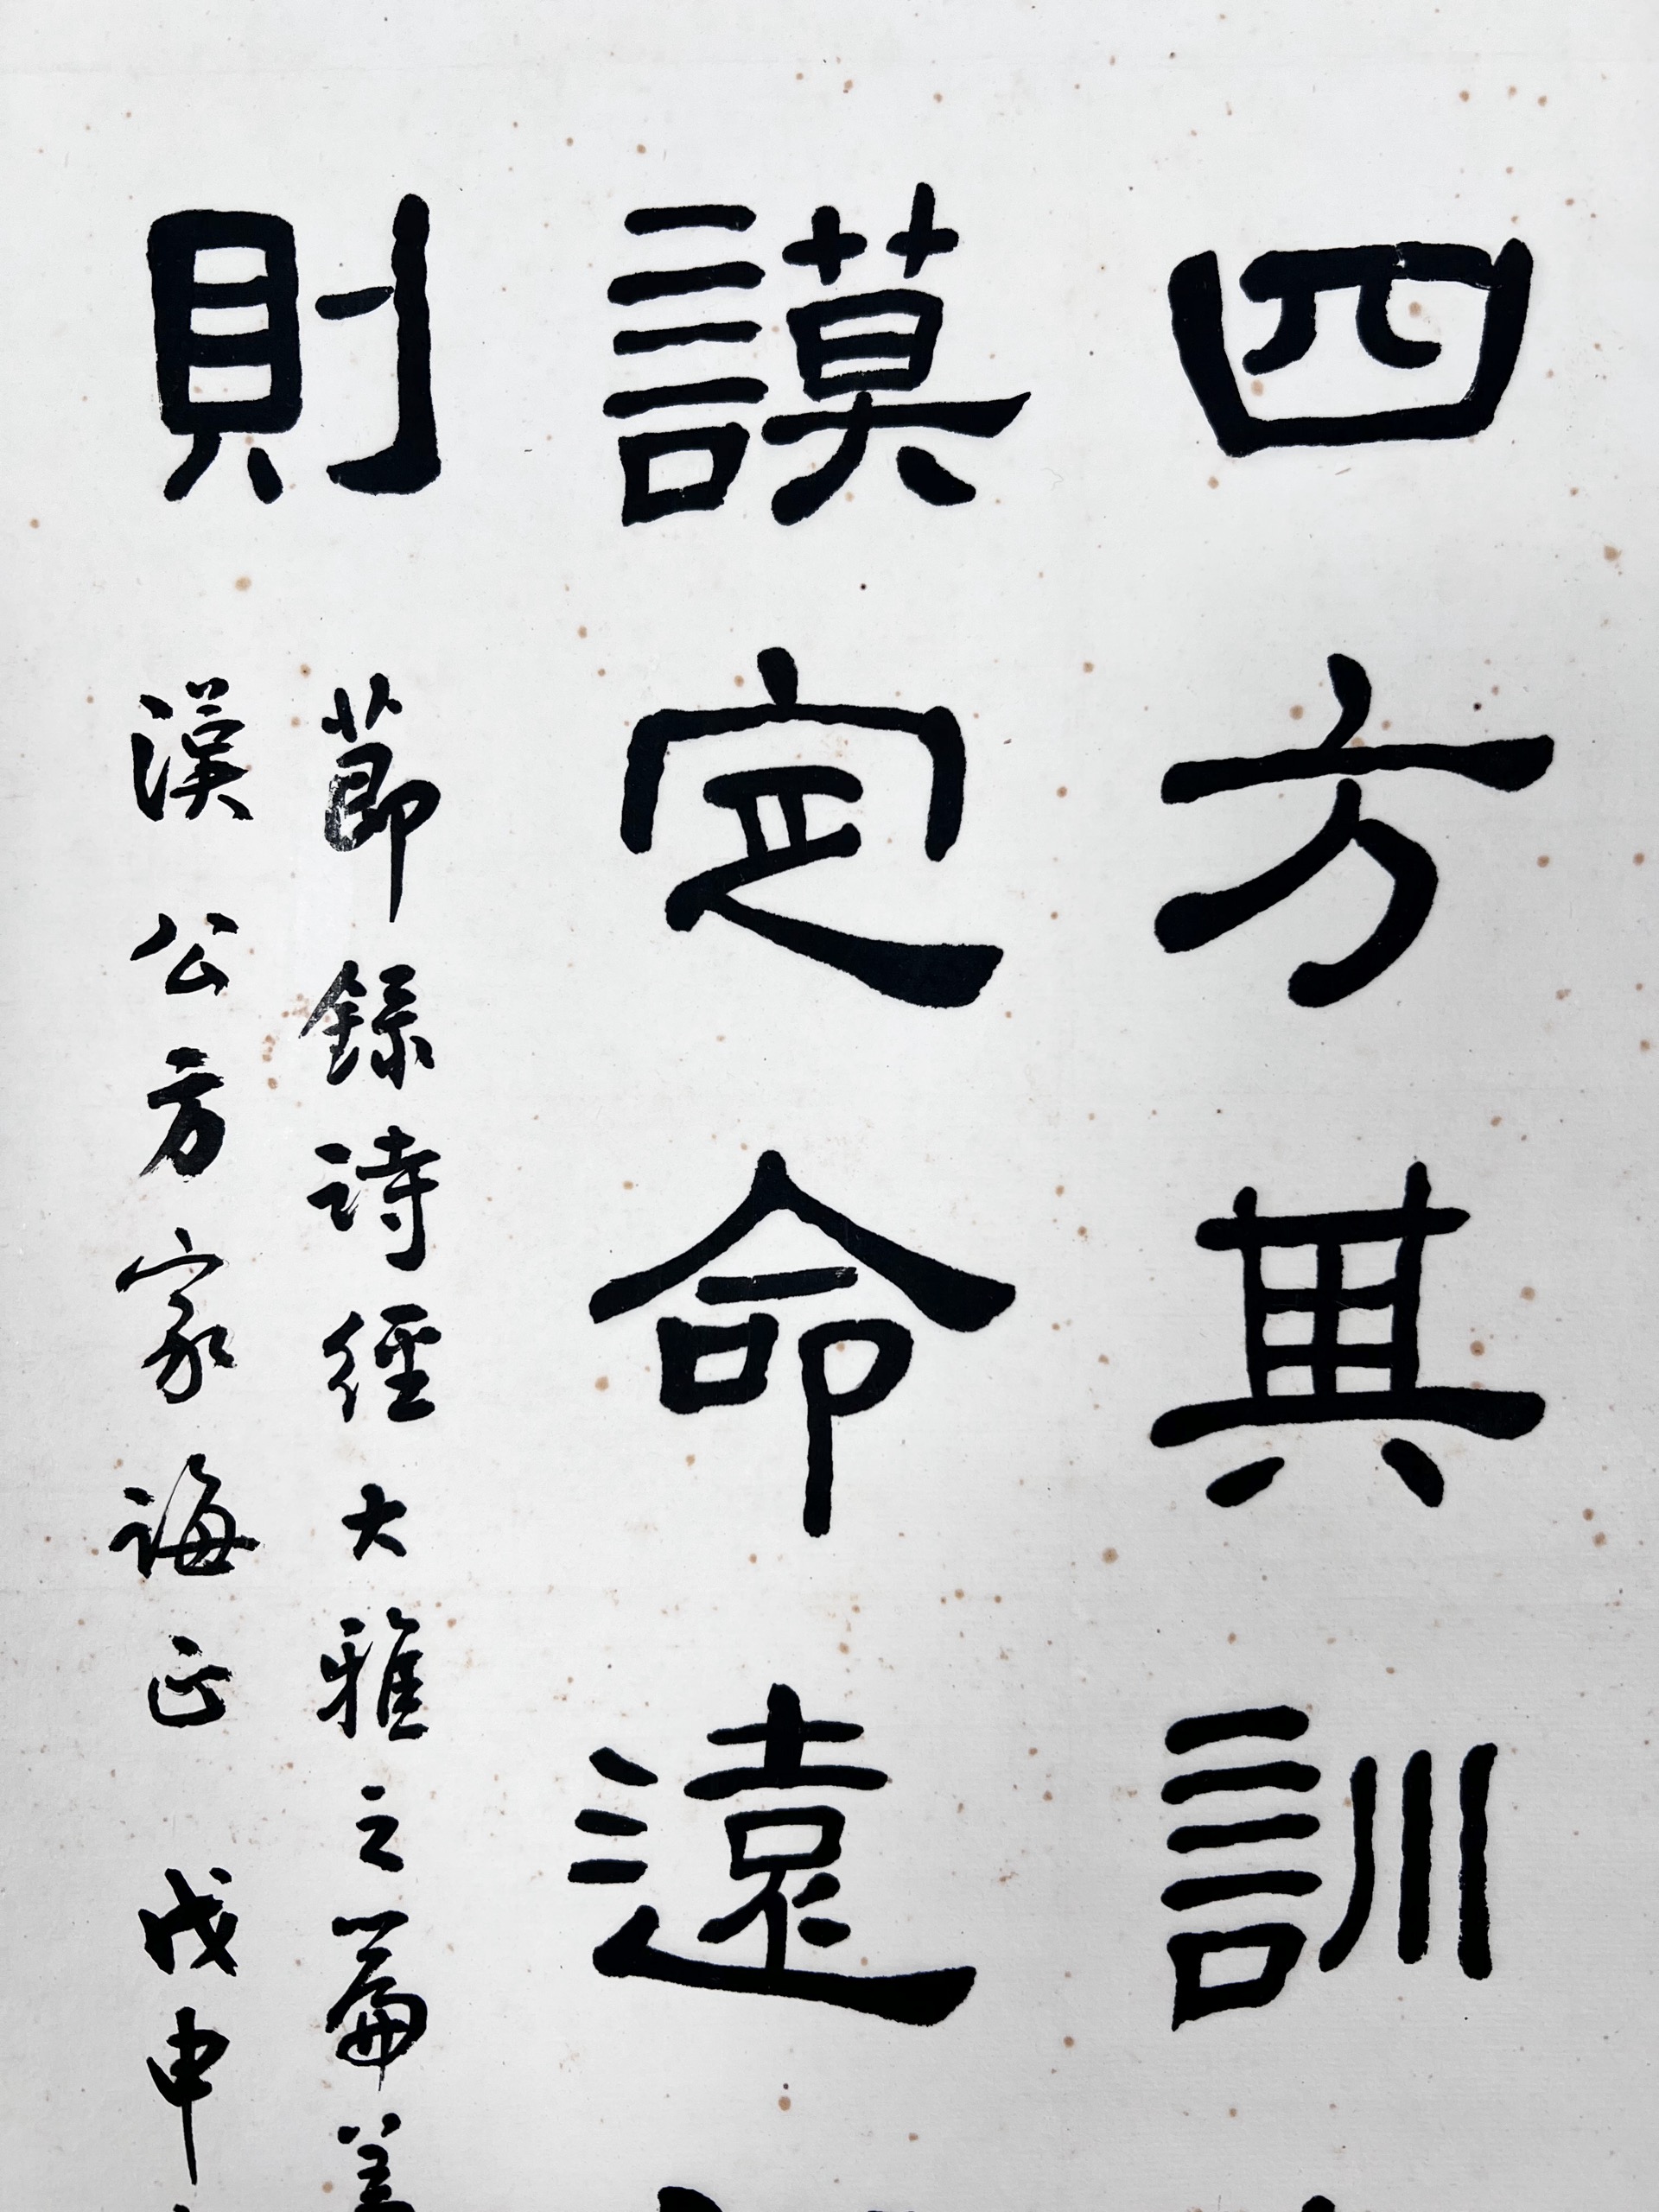 四方其訓
謨定命遠
則
節錄詩經大雅之篇
漢公方家誨正 戊申